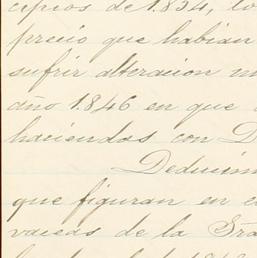 cipios de 1.834, lo
precio que habian
sufrir alteracion
año 1.846 en que
haciendas con D
Deducim
que figuran en e
vacas de la Sra